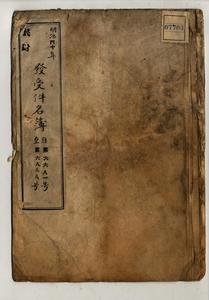 明治四十年
發受件名簿
自第六六五一号
至第六八八八号
07701